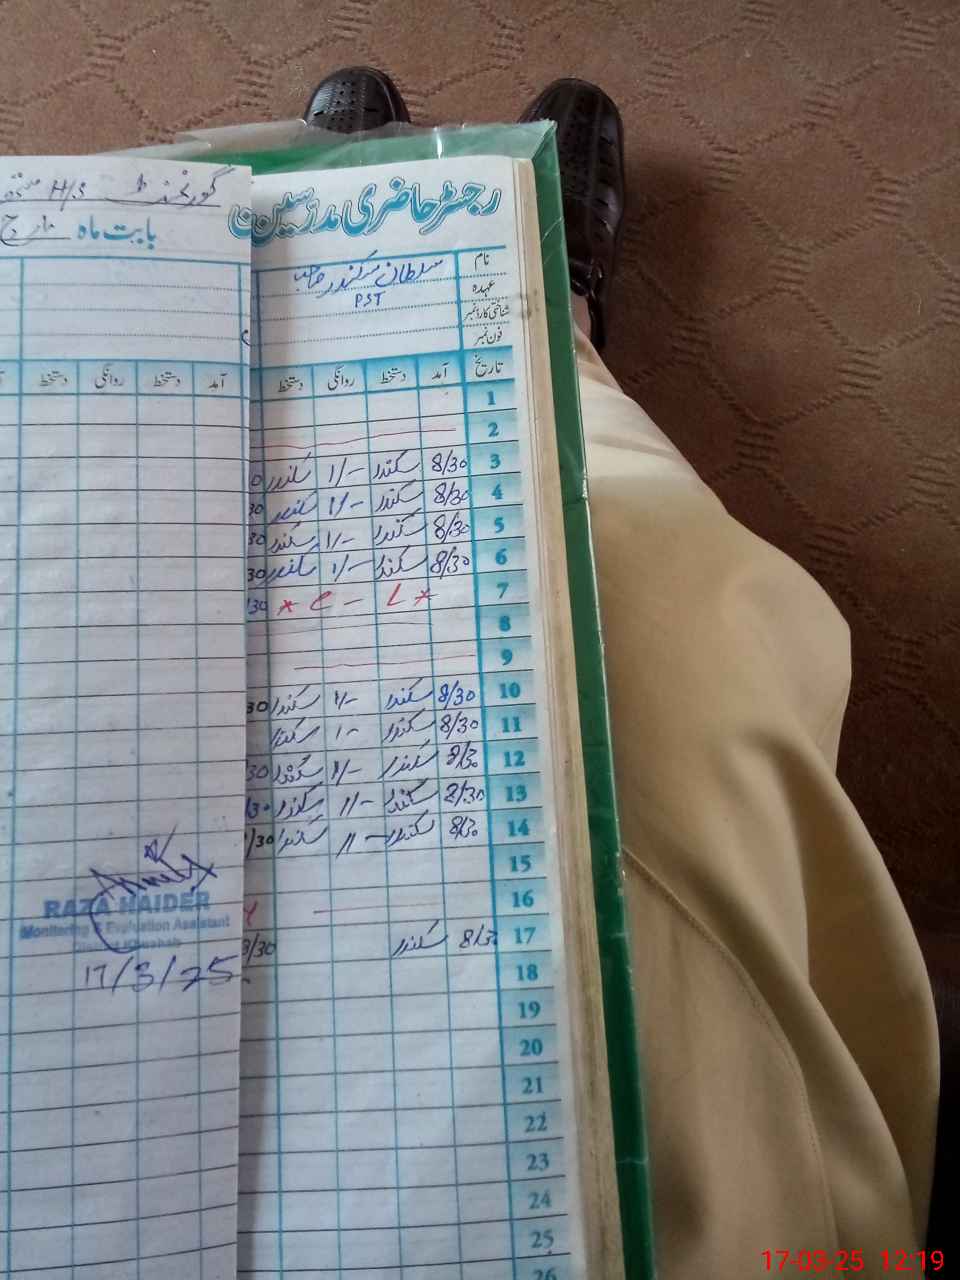 رجسٹر حاضری مدرسین
گورنمنٹ H/S
بابت ماہ مارچ
نام سلطان سکندر صاحب
عہدہ PST
شناختی کارڈ نمبر
فون نمبر
تاریخ آمد دستخط روانگی دستخط آمد دستخط روانگی دستخط
1
2
3 8/30 سکندر 1/- سکندر
4 8/30 سکندر 1/- سکندر 30
5 8/30 سکندر 1/- سکندر 30
6 8/30 سکندر 1/- سکندر 30
7 * L - e * /30
8
9
10 8/30 سکندر 1/- سکندر 30
11 8/30 سکندر 1- سکندر
12 8/30 سکندر 1/- سکندر 30
13 8/30 سکندر 11- سکندر /30
14 8/30 سکندر 11- سکندر /30
15
16
17 8/30 سکندر 8/30
18
19
20
21
22
23
24
25
26
RAZA HAIDER
Monitoring & Evaluation Assistant
District Khushab
17/3/25
17-03-25 12:19